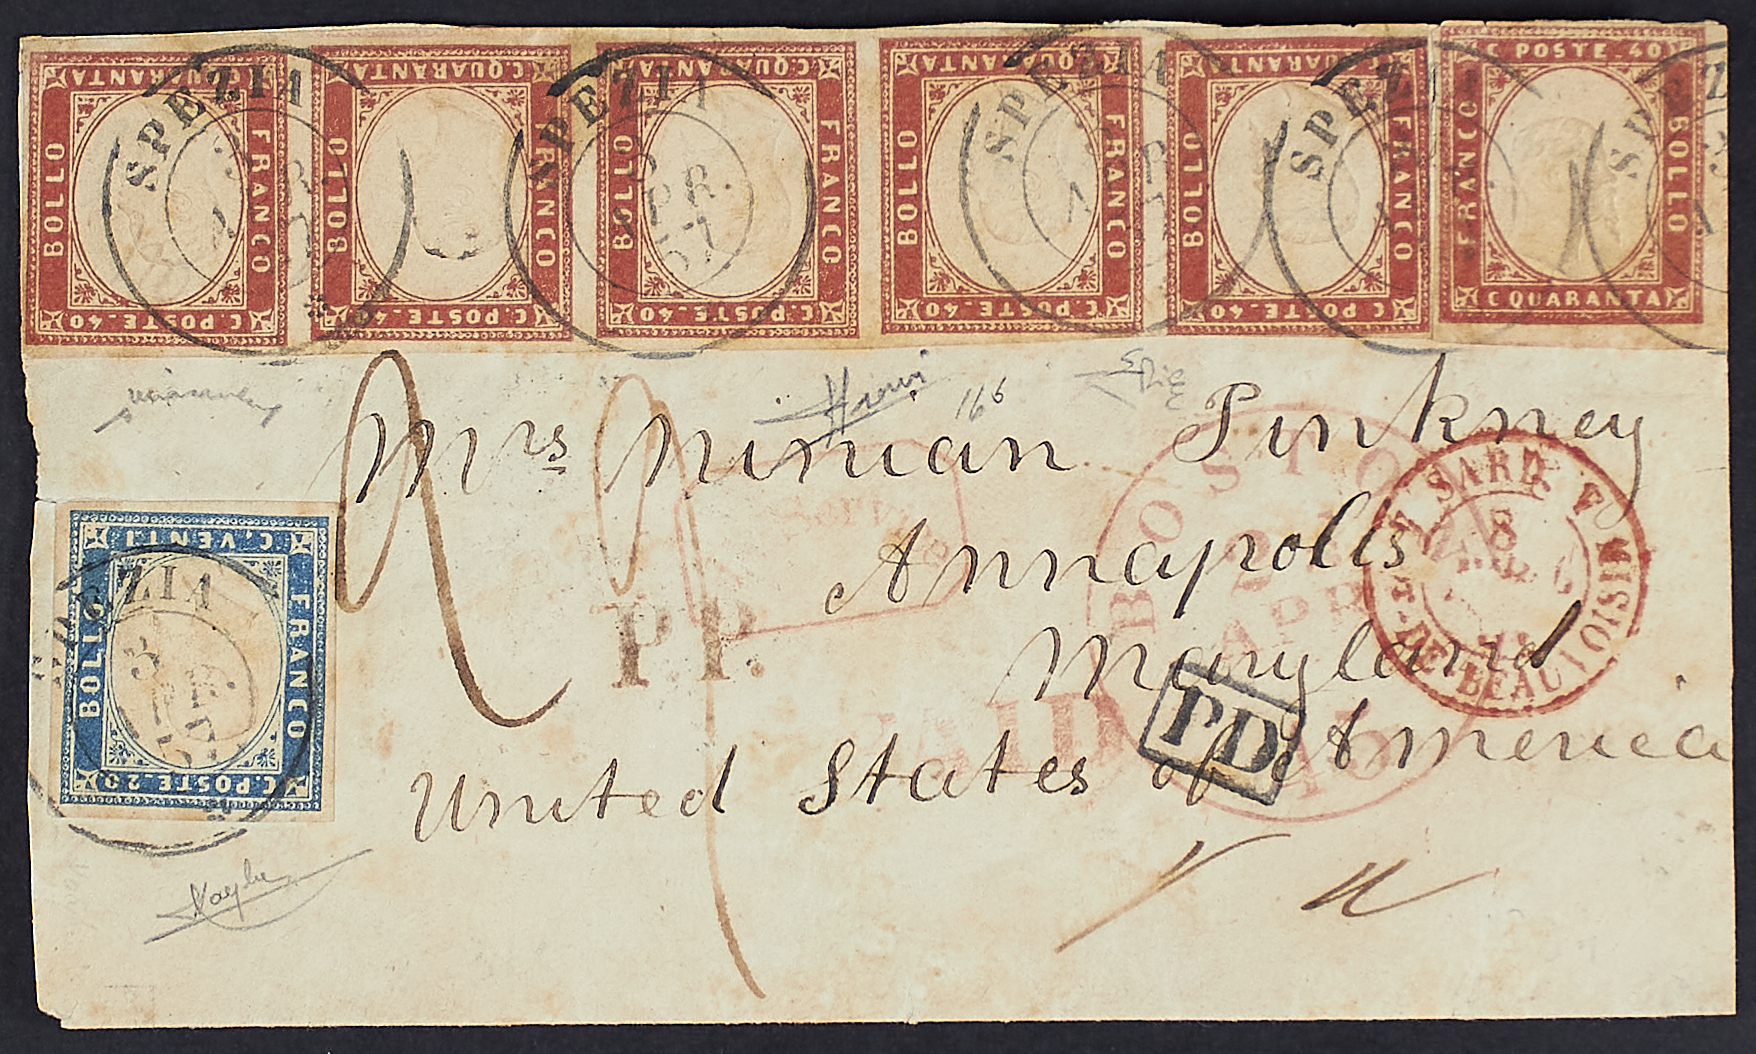 C.QUARANTA C.QUARANTA C.QUARANTA C.QUARANTA C.QUARANTA C POSTE.40
BOLLO FRANCO BOLLO FRANCO BOLLO FRANCO BOLLO FRANCO BOLLO FRANCO FRANCO BOLLO
C.POSTE.40 C.POSTE.40 C.POSTE.40 C.POSTE.40 C.POSTE.40 C QUARANTA
SPEZIA SPEZIA SPEZIA SPEZIA
APR.
57
166
Mrs Ninian Pinkney
Annapolis
Maryland
United States of America
C.VENTI
BOLLO FRANCO
C.POSTE.20
SPEZIA
P.P.
PD
BOSTO
APR
PAID
SARD
8
DE-BEAUVOISIN